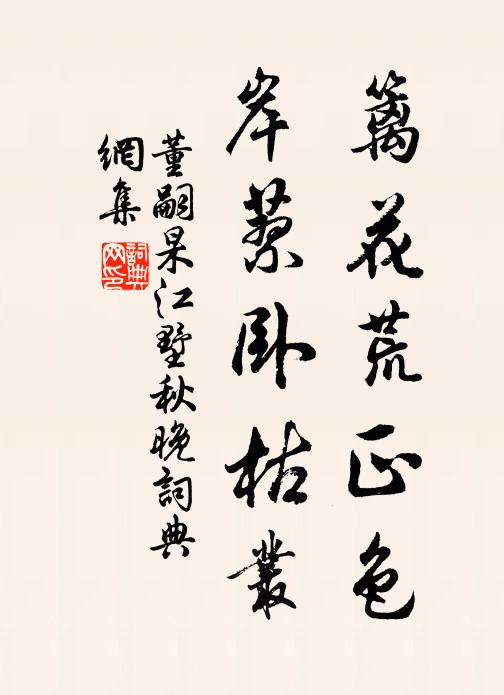 篱花荒正色
岸蓼卧枯叢
董嗣杲江墅秋晚詞典
網集
詞典
网印